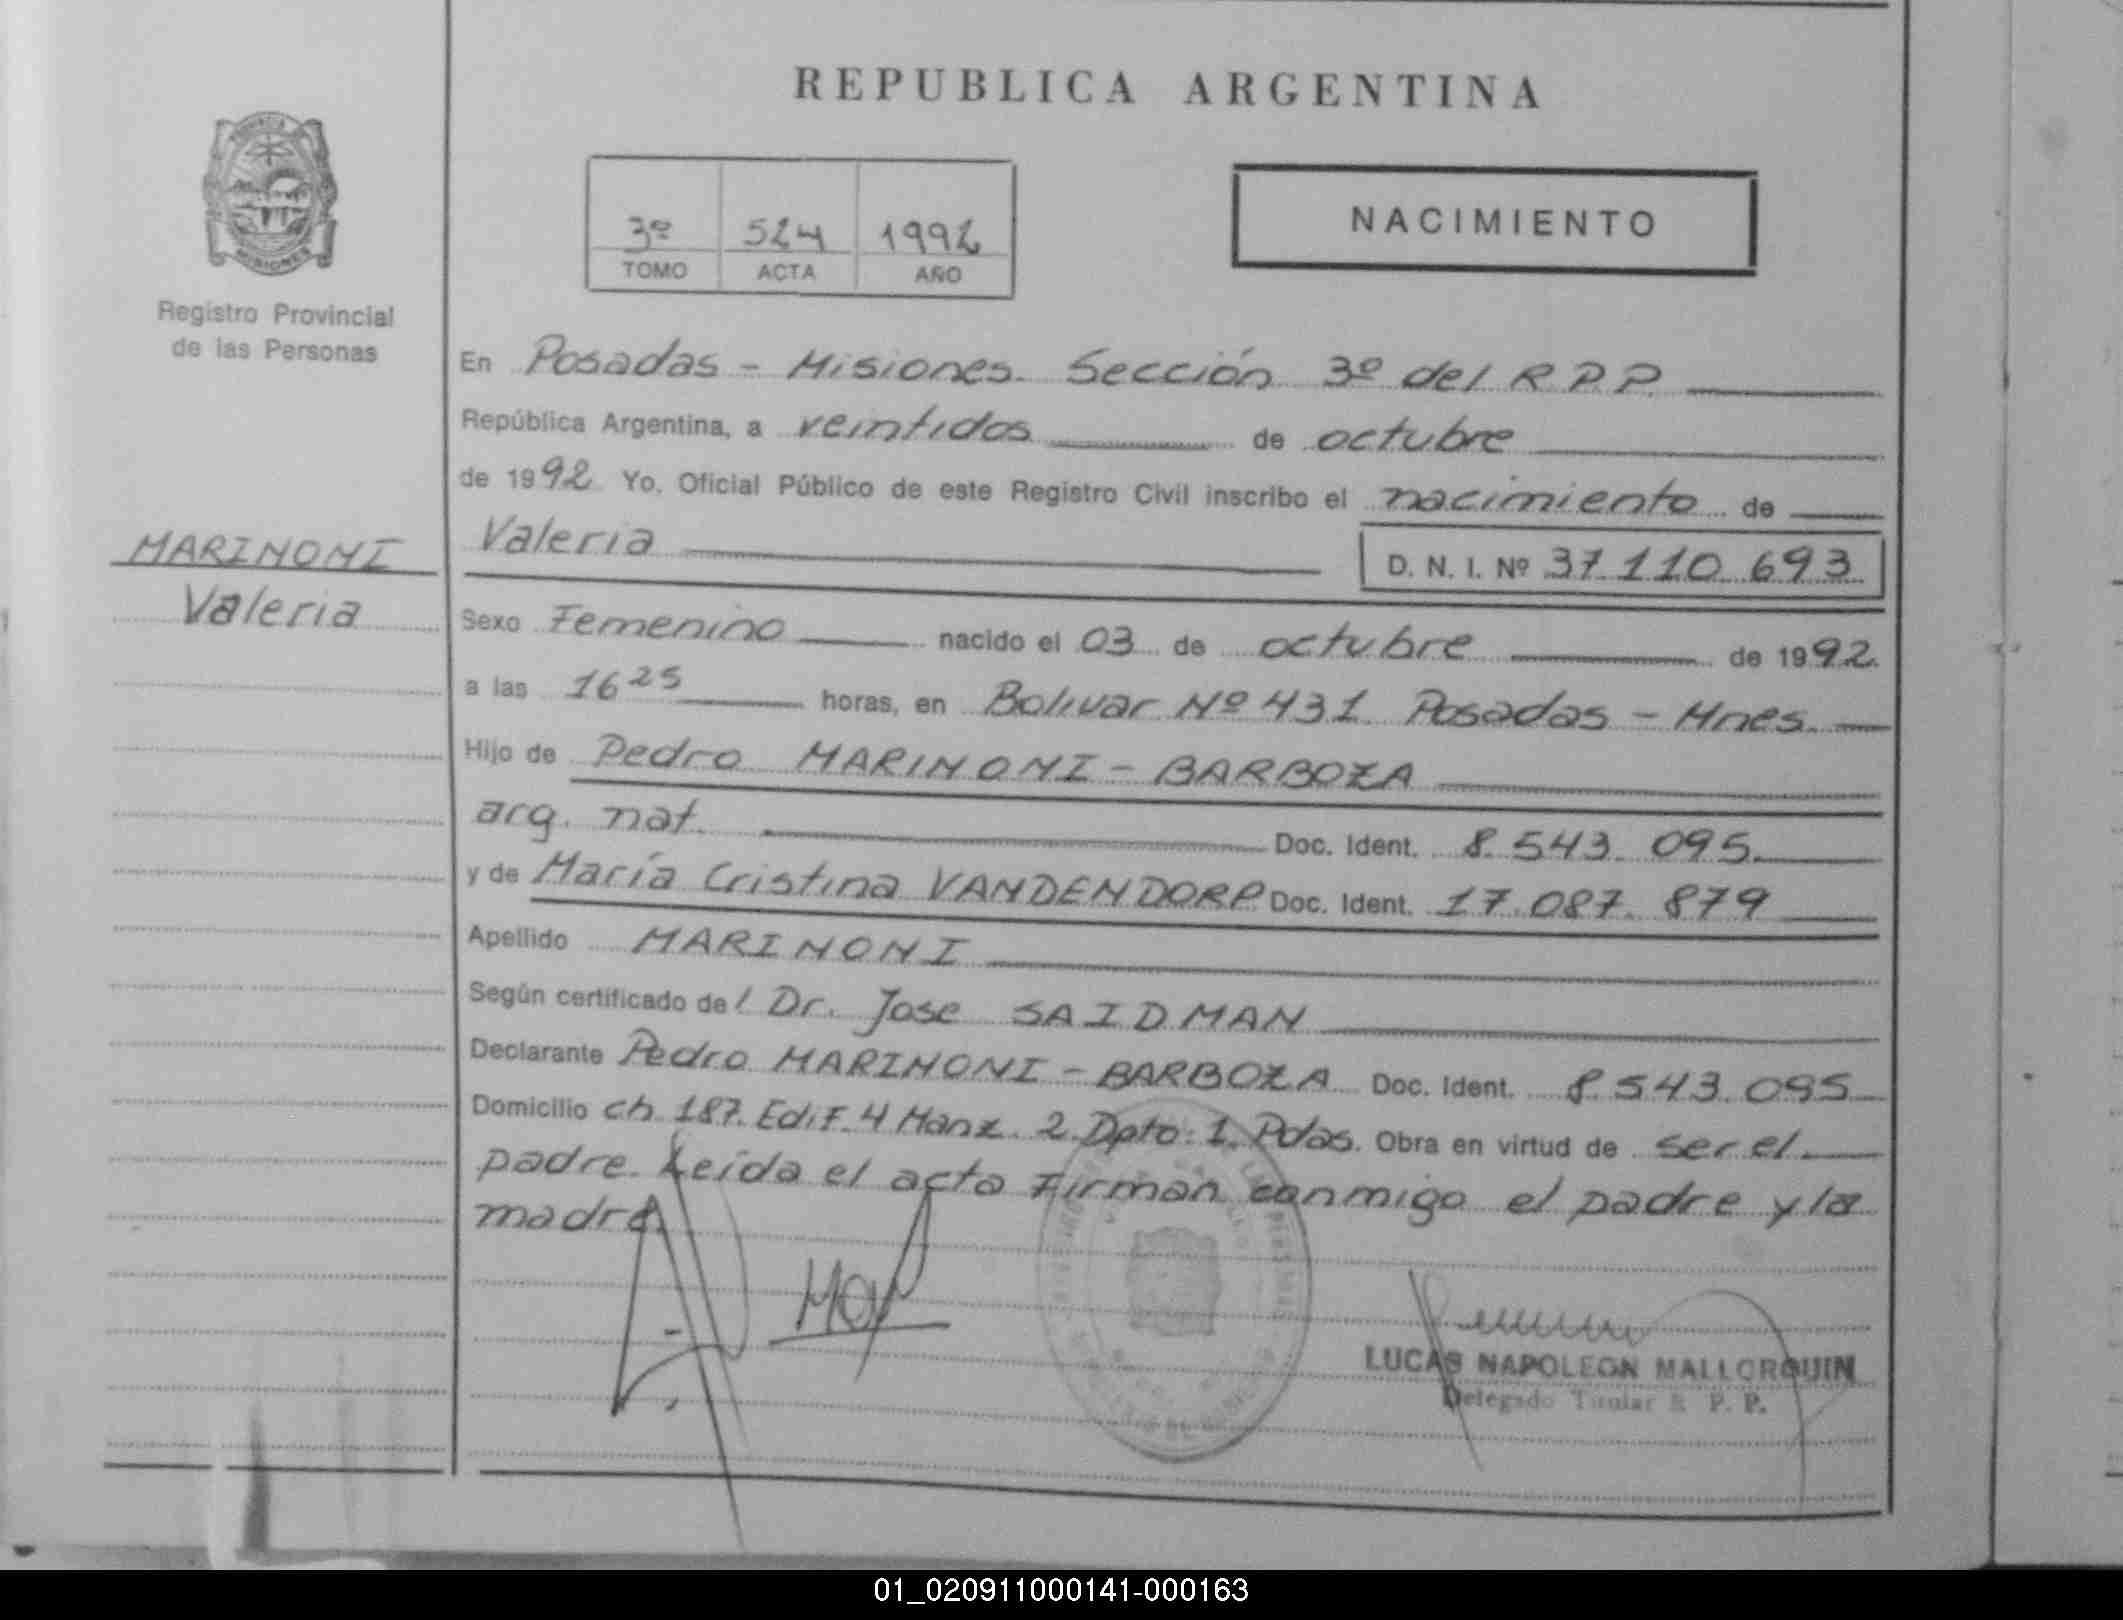 REPUBLICA ARGENTINA
PROVINCIA
MISIONES
Registro Provincial
de las Personas
3º 524 1992
TOMO ACTA AÑO
NACIMIENTO
En Posadas - Misiones. Sección 3º del R.P.P.
República Argentina, a veintidos de octubre
de 1992 Yo, Oficial Público de este Registro Civil inscribo el nacimiento de
MARINONI
Valeria
Valeria D. N. I. Nº 37.110.693
Sexo Femenino nacido el 03 de octubre de 1992
a las 16 25 horas, en Bolivar Nº 431 Posadas - Mnes.
Hijo de Pedro MARINONI - BARBOZA
arg. nat. Doc. Ident. 8.543.095
y de María Cristina VANDENDORP Doc. Ident. 17.087.879
Apellido MARINONI
Según certificado de l Dr. Jose SAIDMAN
Declarante Pedro MARINONI - BARBOZA Doc. Ident. 8.543.095
Domicilio Ch 187. Edif. 4 Manz. 2 Dpto. 1. Pdas. Obra en virtud de ser el
padre. Leída el acta firman conmigo el padre y la
madre
LUCAS NAPOLEON MALLORQUIN
Delegado Titular R. P. P.
01_020911000141-000163